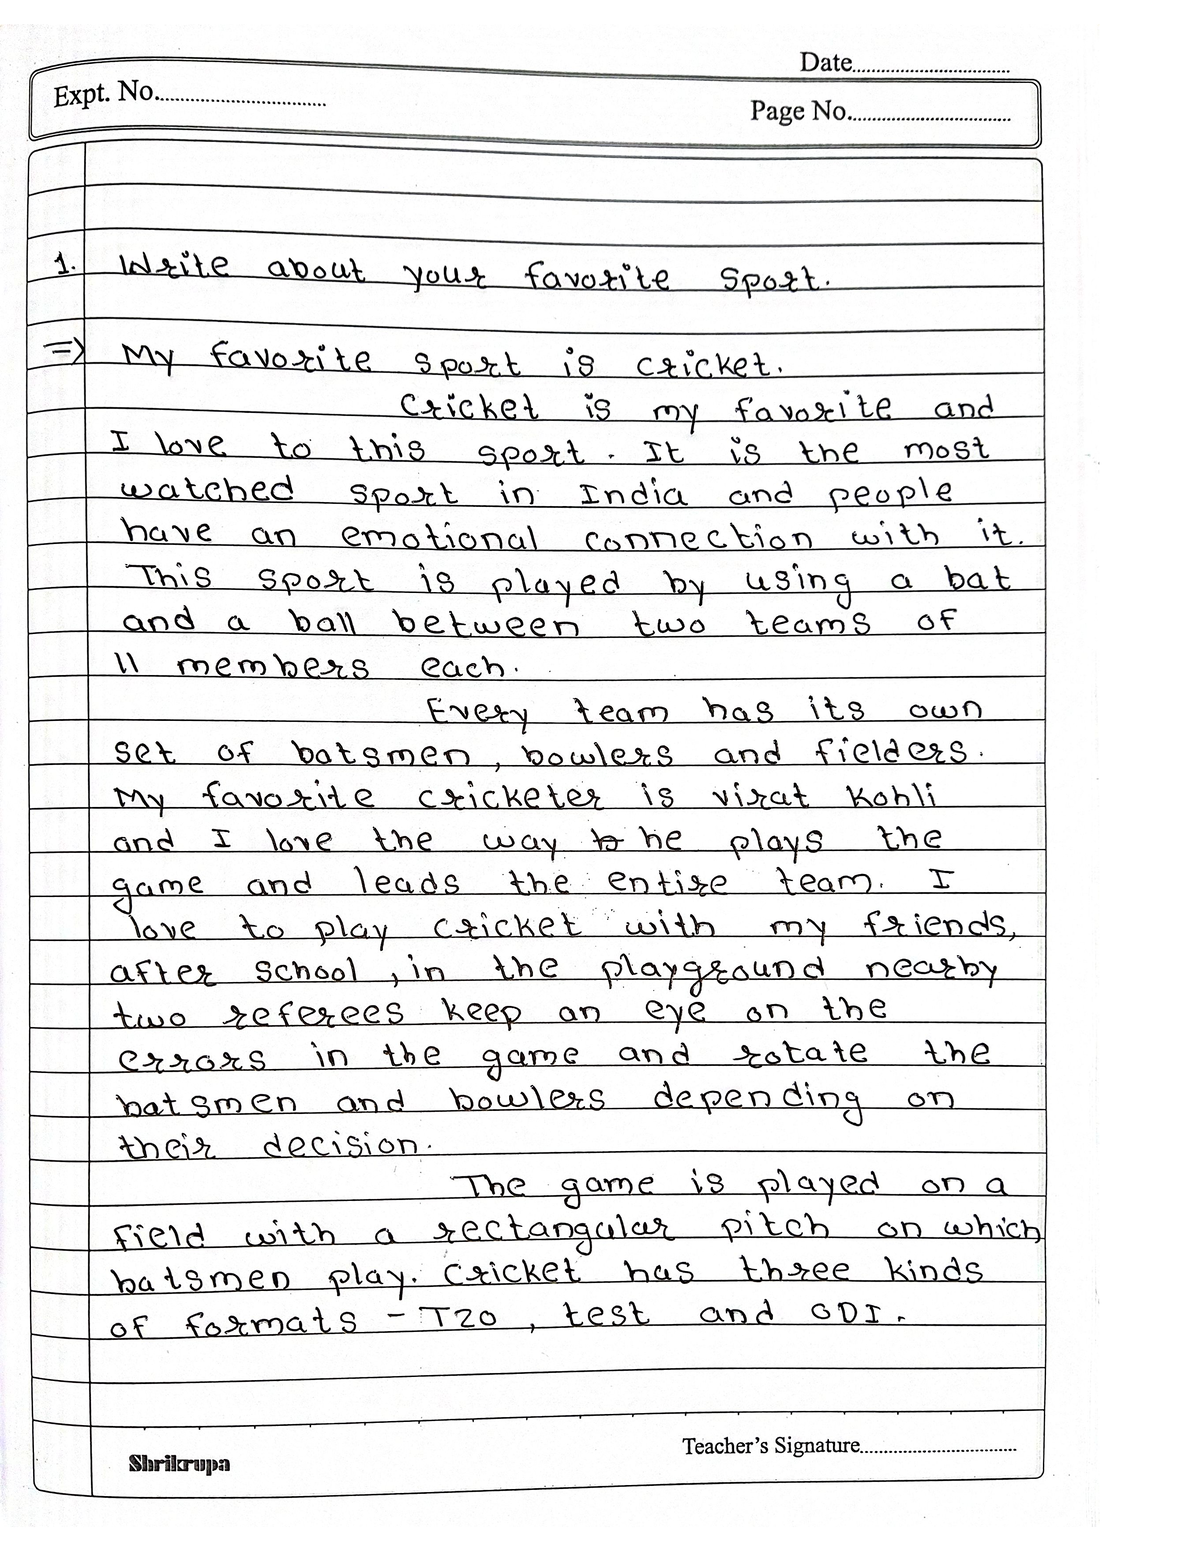 Date..............................
Expt. No..............................
Page No..............................
1. Write about your favorite sport.
=> My favorite sport is cricket.
Cricket is my favorite and
I love to this sport. It is the most
watched sport in India and people
have an emotional connection with it.
This sport is played by using a bat
and a ball between two teams of
11 members each.
Every team has its own
set of batsmen, bowlers and fielders.
My favorite cricketer is virat Kohli
and I love the way he plays the
game and leads the entire team. I
love to play cricket with my friends,
after school, in the playground nearby
two referees keep an eye on the
errors in the game and rotate the
batsmen and bowlers depending on
their decision.
The game is played on a
field with a rectangular pitch on which
batsmen play. Cricket has three kinds
of formats - T20, test and ODI.
Teacher's Signature..............................
Shrikrupa